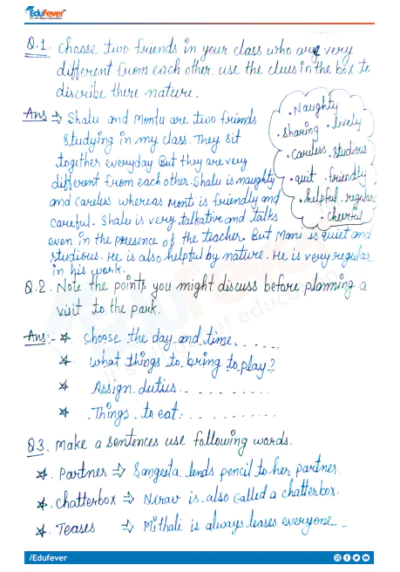 EduFever
Q.1. Choose two friends in your class who are very
different from each other. use the clues in the box to
discribe there nature.
Ans → Shalu and Montu are two friends
studying in my class. They sit
together everyday But they are very
different from each other. Shalu is naughty
and careless whereas Monti is friendly and
careful. Shalu is very talkative and talks
even in the presence of the teacher. But Moni is quiet and
studious. He is also helpful by nature. He is very regular
in his work.
• Naughty
• sharing • lively
• careless. studious
• quit • friendly
• helpful. regular
• cheerful
Q.2. Note the points you might discuss before planning a
visit to the park.
Ans:- * Choose the day and time......
* What things to bring to play?
* Assign duties...........
* Things to eat...........
Q3. Make a sentences use following words.
* Partner ⇒ Sangeeta lends pencil to her partner.
* Chatterbox ⇒ Nirav is also called a chatterbox.
* Teases ⇒ Mithali is always teases everyone..
/Edufever